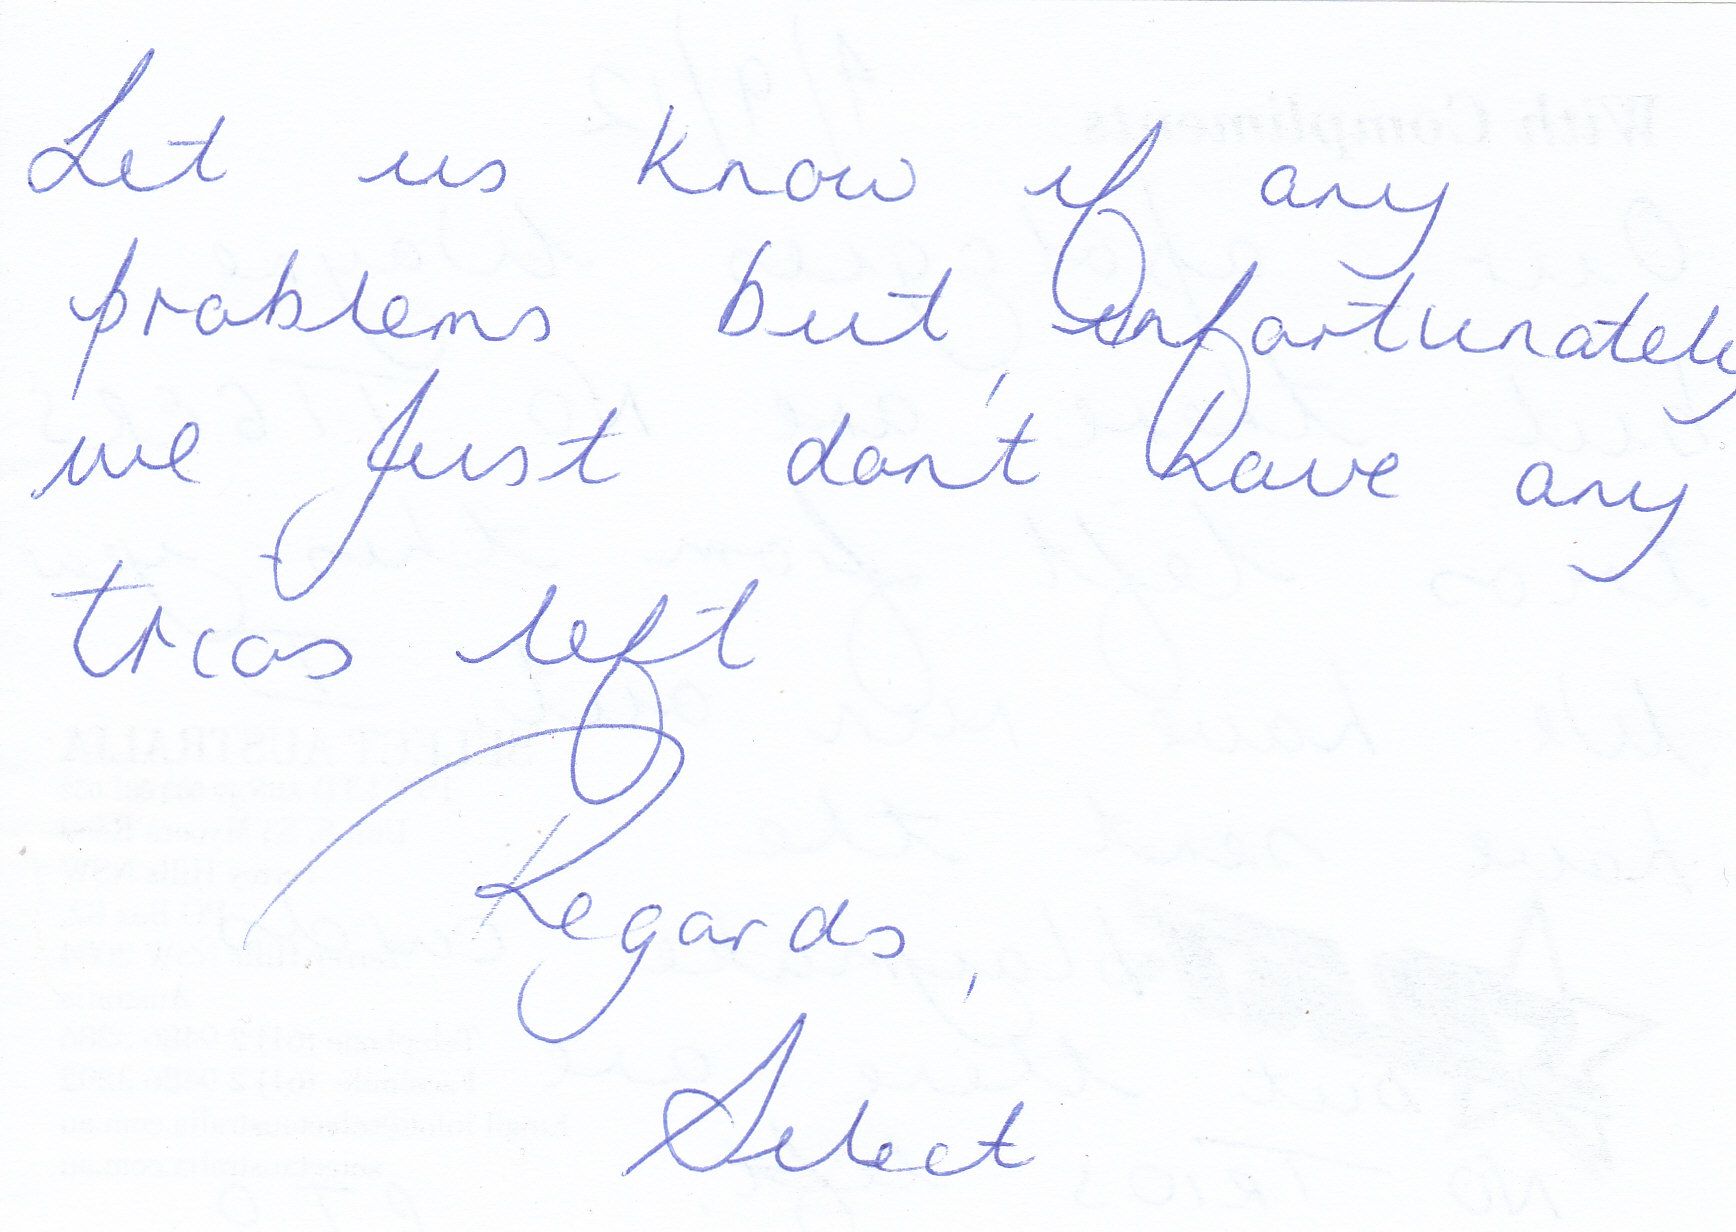 Let us know if any
problems but, unfortunately
we just don't have any
trios left
Regards,
Select